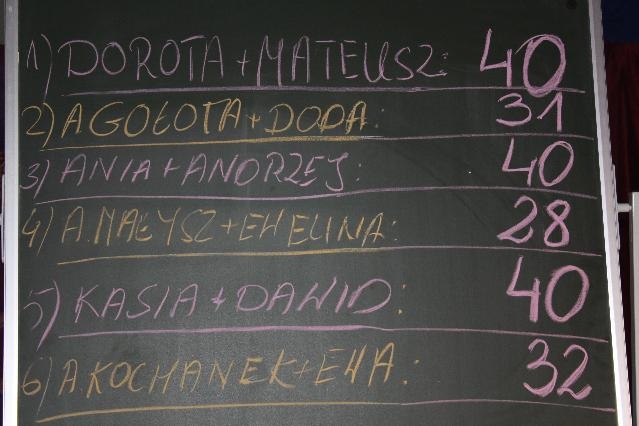 1) DOROTA + MATEUSZ: 40
2) A GOŁOTA + DODA: 31
3) ANIA + ANDRZEJ: 40
4) A. MAŁYSZ + EWELINA: 28
5) KASIA + DAWID: 40
6) A KOCHANEK + EWA: 32